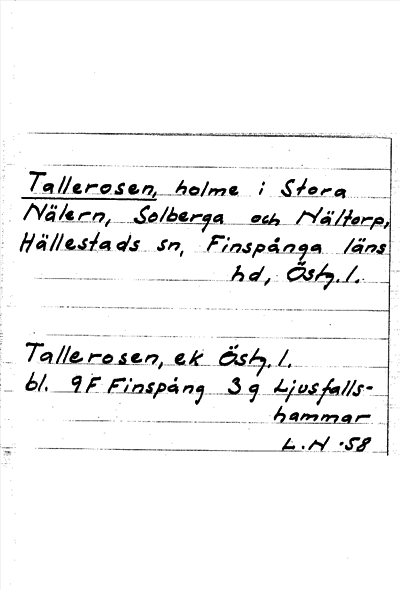 Tallerosen, holme i Stora
Nälern, Solberga och Nältorp,
Hällestads sn, Finspånga läns
hd, Östg.l.
Tallerosen, ek Östg.l.
bl. 9F Finspång 3g Ljusfalls-
hammar
L.H -58